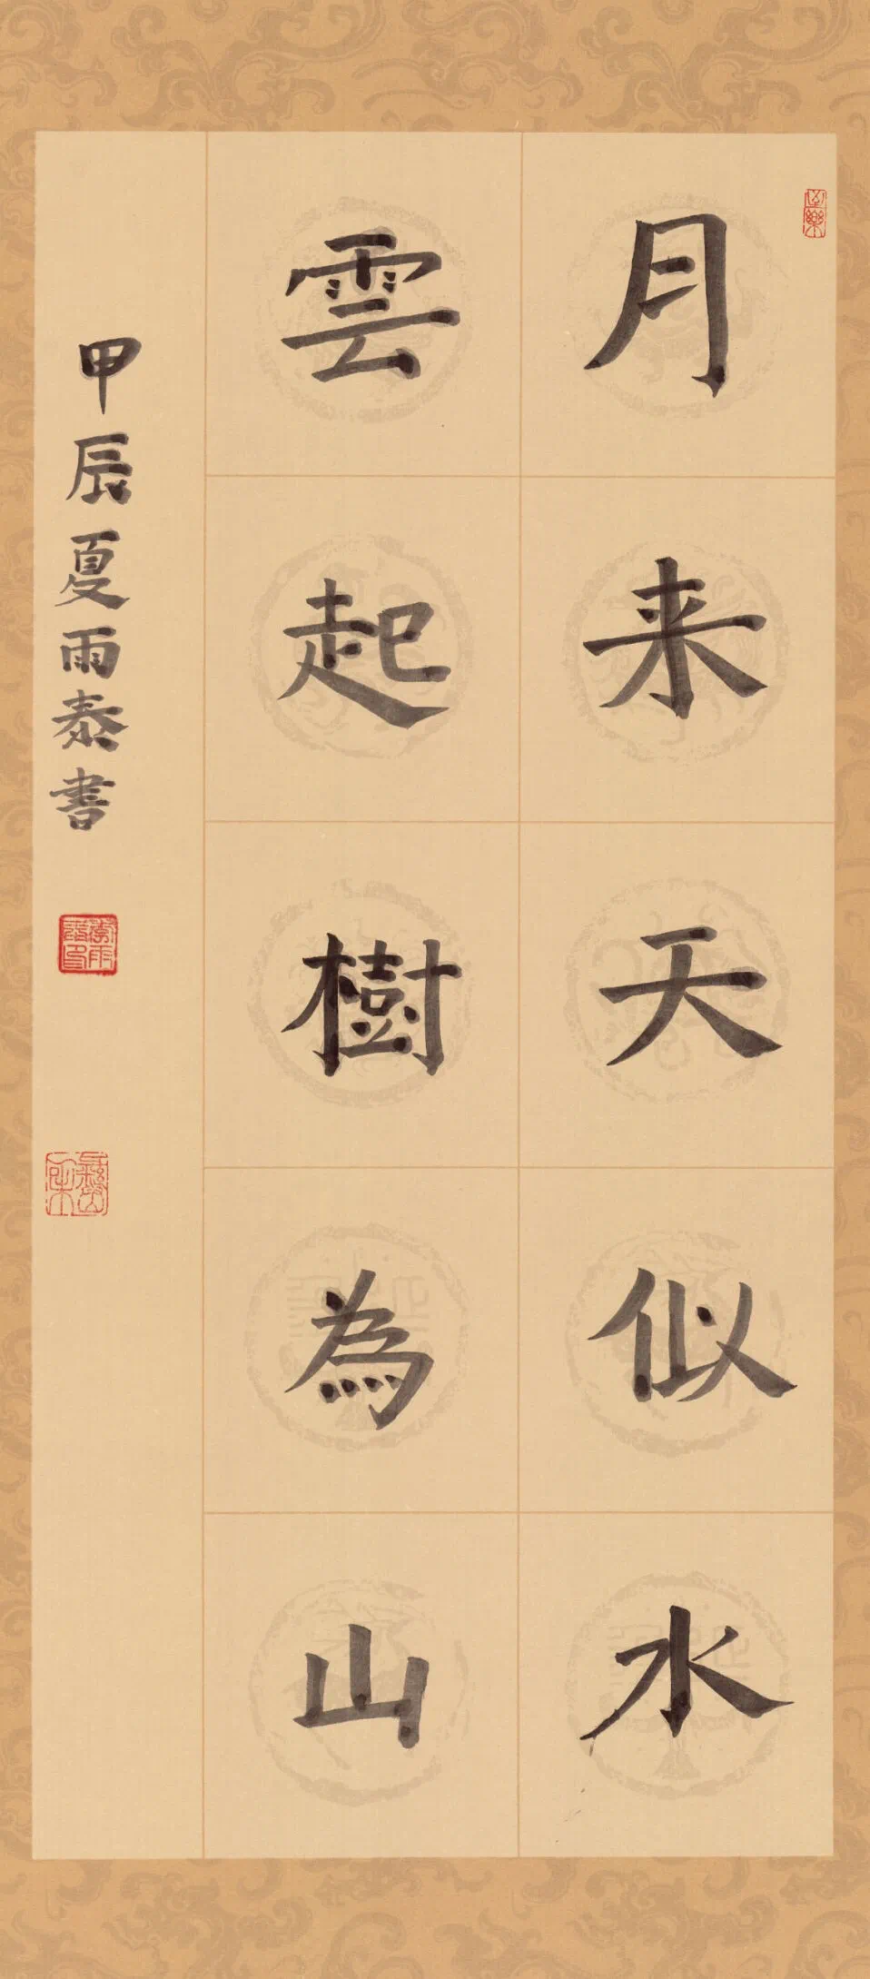 月来天似水
雲起樹為山
甲辰夏雨泰書